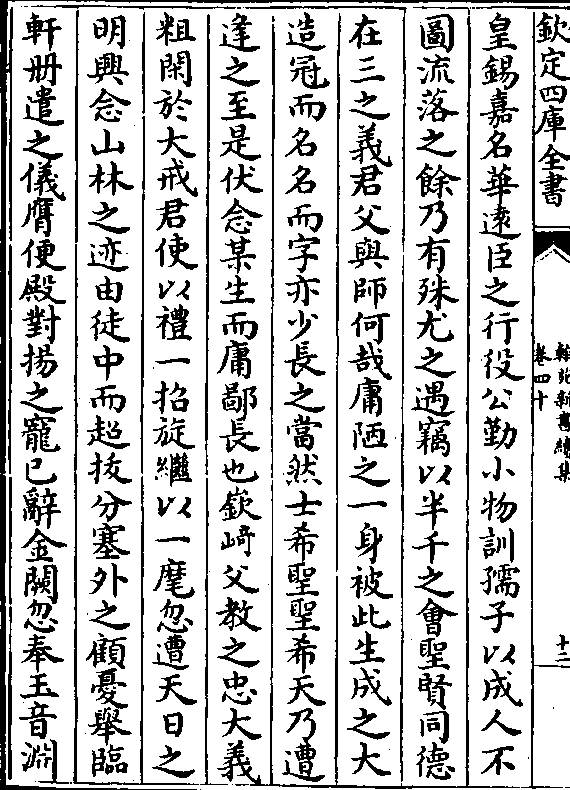 欽定四庫全書
翰苑新書續集
卷四十
十二
皇錫嘉名華遠臣之行役公勤小物訓孺子以成人不
圖流落之餘乃有殊尤之遇竊以半千之會聖賢同德
在三之義君父與師何哉庸陋之一身被此生成之大
造冠而名名而字亦少長之當然士希聖聖希天乃遭
逢之至是伏念某生而庸鄙長也嶔﨑父教之忠大義
粗閑於大戒君使以禮一招旋繼以一麾忽遭天日之
明興念山林之迹由徒中而超拔分塞外之顧憂舉臨
軒册遣之儀膺便殿對揚之寵已辭金闕忽奉玉音淵